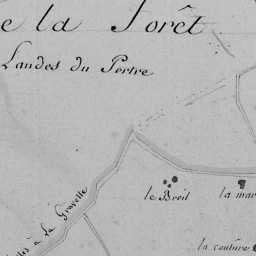 e la Forêt
Landes du Portre
le Breil
la mar
à La Gravelle
la couture